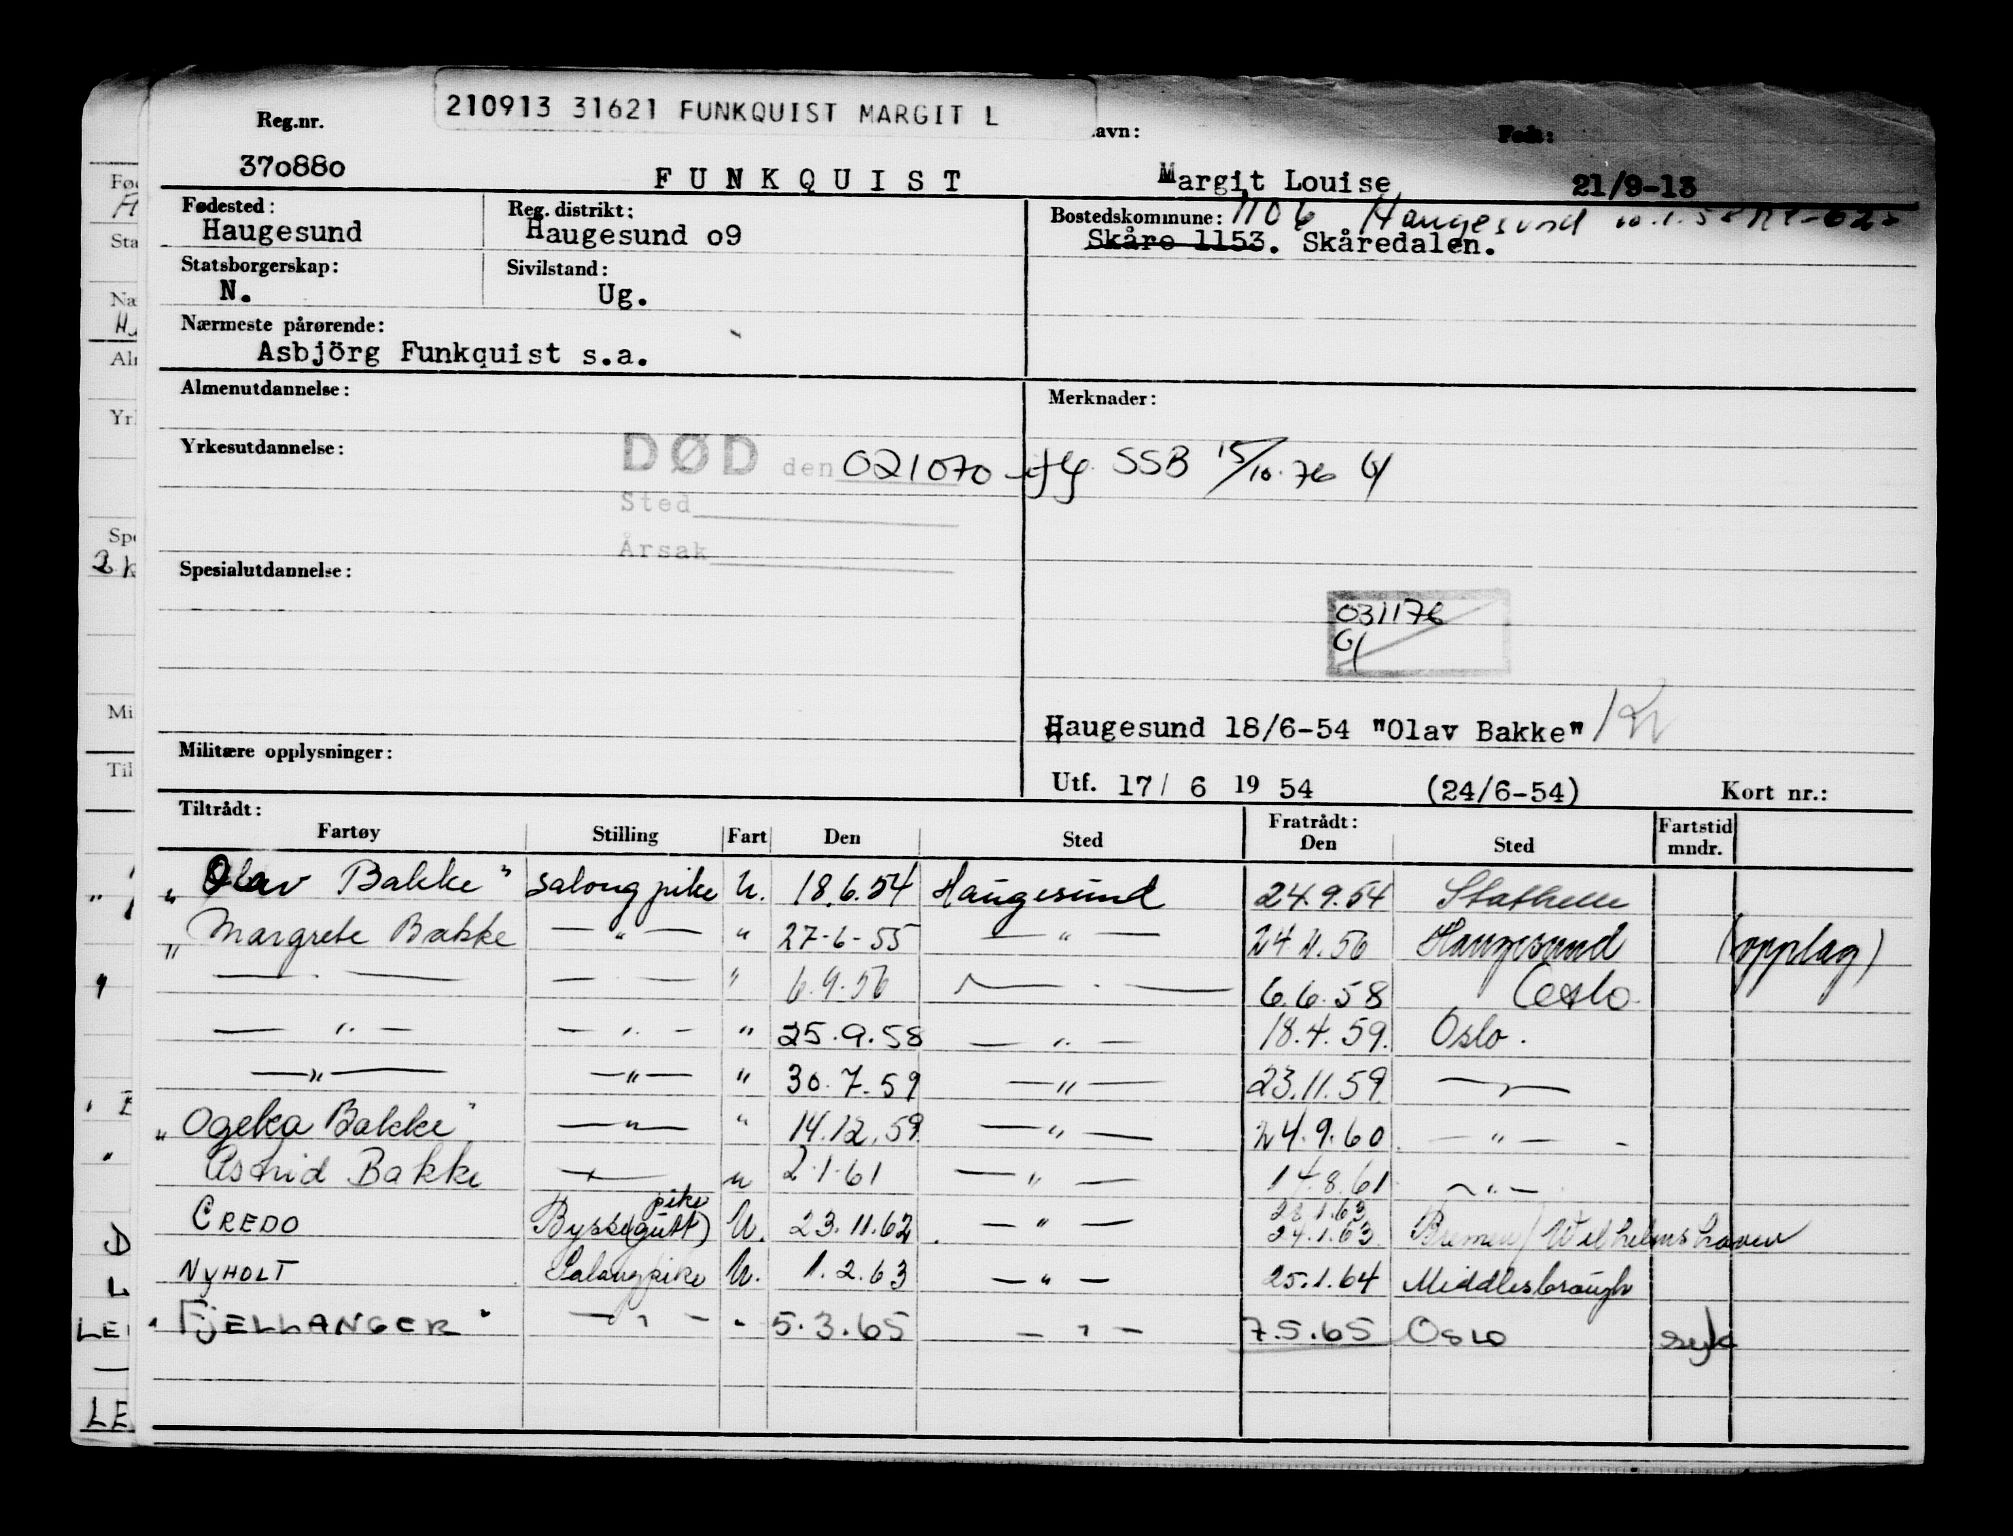 210913 31621 FUNKQUIST MARGIT L
Reg.nr. avn: Født:
370880 FUNKQUIST Margit Louise 21/9-13
Fødested: Reg. distrikt: Bostedskommune: 1106 Haugesund
Haugesund Haugesund 09 Skåre 1153. Skåredalen.
Statsborgerskap: Sivilstand:
N. Ug.
Nærmeste pårørende:
Asbjörg Funkquist s.a.
Almenutdannelse: Merknader:
Yrkesutdannelse: DØD den 021070 SSB 15/10.76
Sted
Årsak
Spesialutdannelse:
031176
Haugesund 18/6-54 "Olav Bakke"
Militære opplysninger:
Utf. 17/ 6 19 54 (24/6-54) Kort nr.:
Tiltrådt: Fratrådt: Fartstid
Fartøy Stilling Fart Den Sted Den Sted mndr.
"Olav Bakke" salongpike U. 18.6.54 Haugesund 24.9.54 Stathelle
"Margrete Bakke — " — " 27-6-55 — " — 24.4.56 Haugesund (opplag)
— — — — " 6.9.56 — — 6.6.58 Oslo.
— " — — " — " 25.9.58 — " — 18.4.59. Oslo.
— " — — " — " 30.7.59 — " — 23.11.59 — " —
"Ogeka Bakke" — " — " 14.12.59 — " — 24.9.60 — " —
Astrid Bakke — " — " 2.1.61 — " — 14.8.61 — " —
pike 28.1.63
CREDO Bysse(gutt) U. 23.11.62. — " — 24.1.63 Bremen/Wilhelmshaven
NYHOLT Salongpike U. 1.2.63 — " — 25.1.64 Middlesbrough
"FJELLANGER" — " — " 5.3.65 — " — 7.5.65 OSLO syk